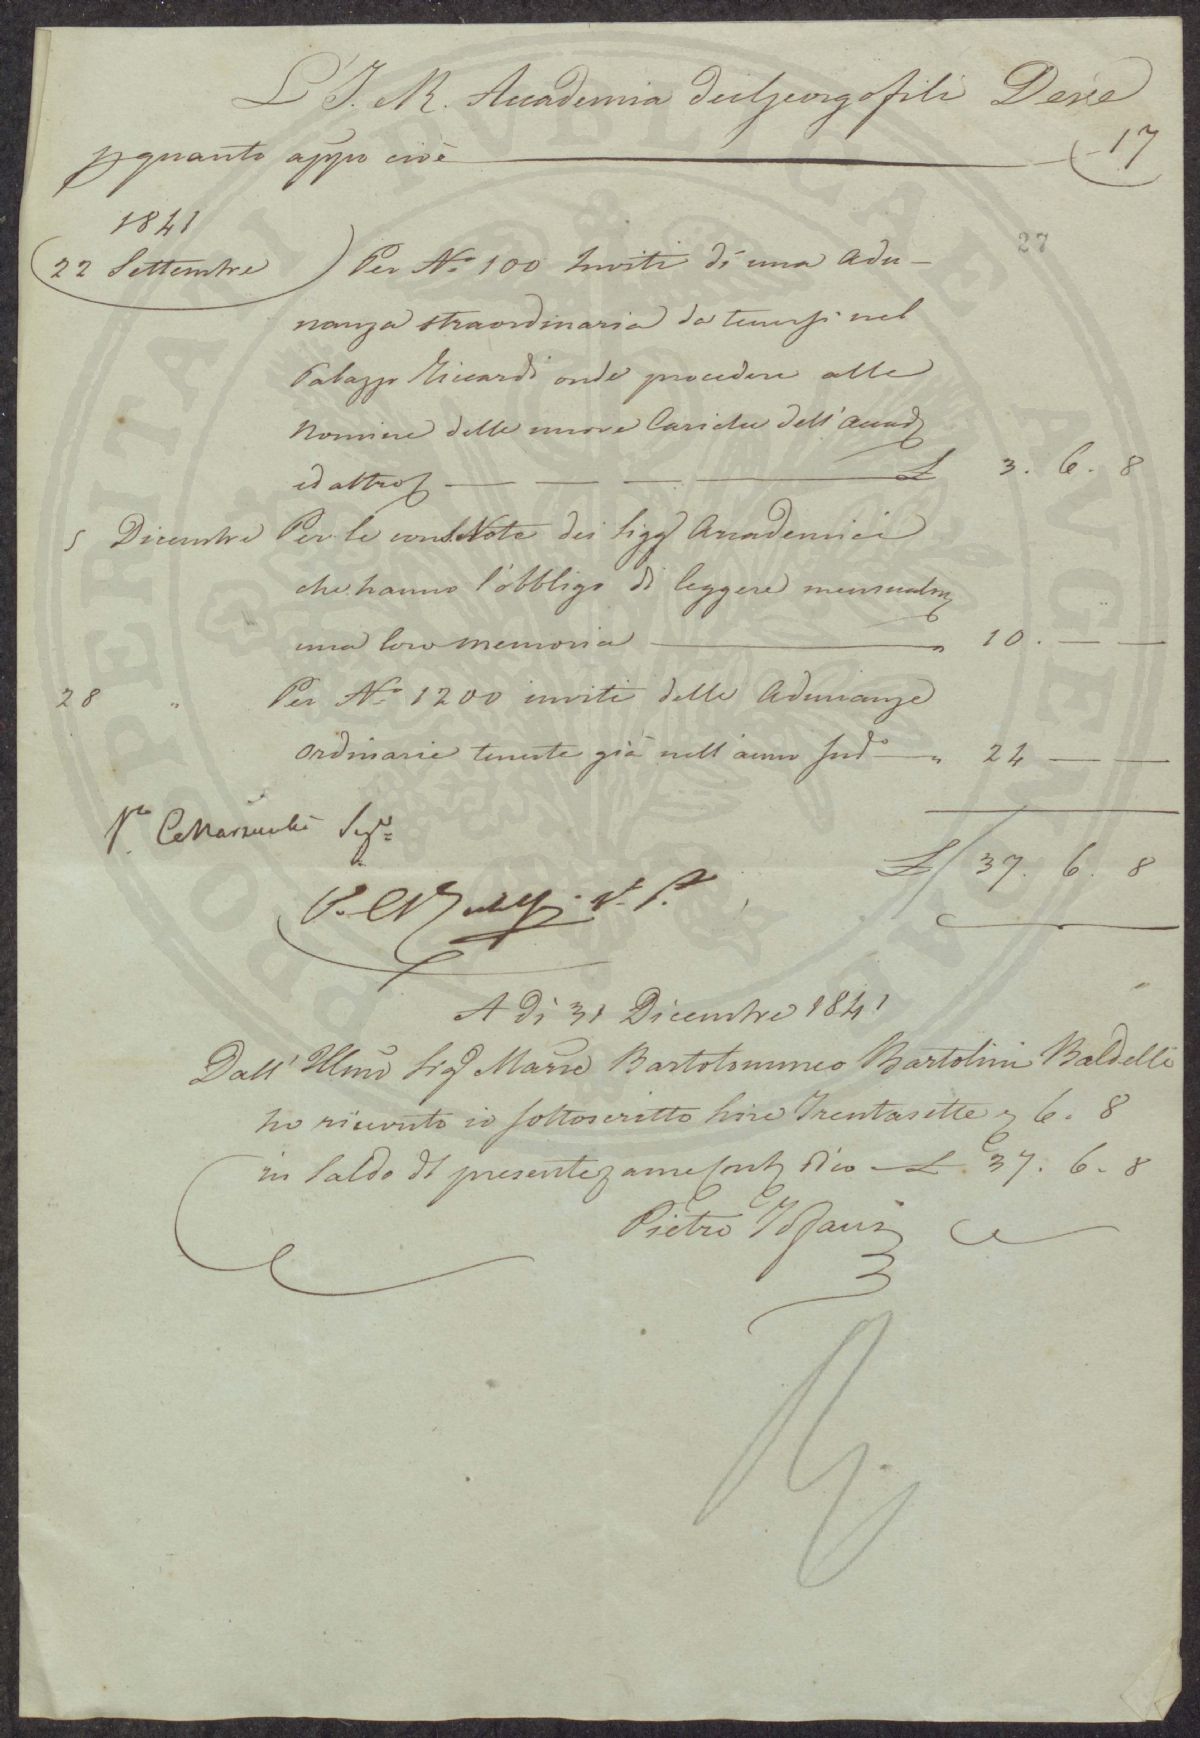 L'I. e R. Accademia dei Georgofili Deve
p quanto appo cioè 17
1841
27
22 Settembre Per No 100 Inviti di una Adu-
nanza straordinaria da tenersi nel
Palazzo Riccardi onde procedere alle
Nomine delle nuove Cariche dell' Accad
ed altro £ 3. 6. 8
5 Dicembre Per le Note dei Sigg Accademici
che hanno l'obbligo di leggere mensualm
una loro memoria " 10. — —
28 " Per No 1200 inviti delle Adunanze
ordinarie tenute già nell'anno sudo " 24 — —
Vo Segro
£ 37. 6. 8
V. P.
A dì 31 Dicembre 1841
Dall' Illmo Sig Marse Bartolommeo Bartolini Baldelli
ho ricevuto io sottoscritto Lire Trentasette e 6. 8
in Saldo del presente dico £ 37. 6. 8
Pietro